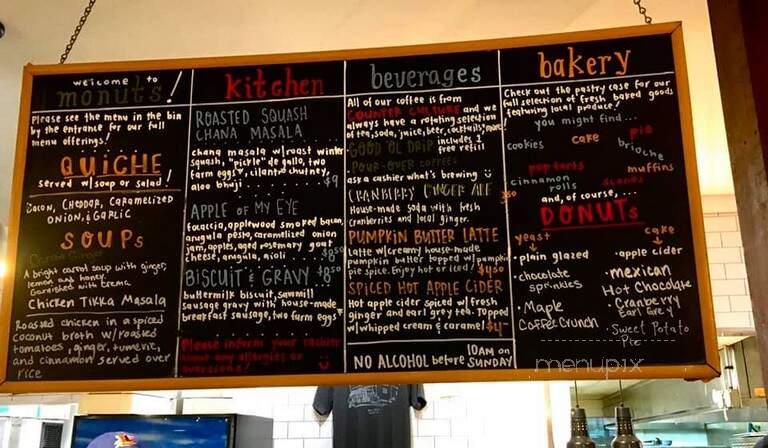 welcome to
monuts!
Please see the menu in the bin
by the entrance for our full
menu offerings!
QUICHE
served w/soup or salad!
Bacon, Cheddar, Caramelized
Onion, & Garlic
SOUPS
Carrot Ginger
A bright carrot soup with ginger,
lemon and honey.
Garnished with crema
Chicken Tikka Masala
Roasted chicken in a spiced
coconut broth w/roasted
tomatoes, ginger, tumeric,
and cinnamon served over
rice
kitchen
ROASTED SQUASH
CHANA MASALA
chana masala w/roast winter
squash, "pickle" de gallo, two
farm eggs, cilantro chutney,
aloo bhuji $9
APPLE OF MY EYE
focaccia, applewood smoked bacon,
arugula pesto, caramelized onion
jam, apples, aged rosemary goat
cheese, arugula, aioli $8.50
BISCUIT & GRAVY $8.50
buttermilk biscuit, sawmill
sausage gravy with house-made
breakfast sausage, two farm eggs
Please inform your cashier
about any allergies or
aversions!
beverages
All of our coffee is from
COUNTER CULTURE and we
always have a rotating selection
of tea, soda, juice, beer, cocktails, more!
GOOD OL DRIP includes 1
free refill
POUR-OVER COFFEES
ask a cashier what's brewing
CRANBERRY GINGER ALE
House-made soda with fresh
cranberries and local ginger.
PUMPKIN BUTTER LATTE
Latte w/creamy house-made
pumpkin butter topped w/pumpkin
pie spice. Enjoy hot or iced! $4.50
SPICED HOT APPLE CIDER
Hot apple cider spiced w/fresh
ginger and earl grey tea. Topped
w/whipped cream & caramel $4-
NO ALCOHOL before 10AM on
SUNDAY
bakery
Check out the pastry case for our
full selection of fresh baked goods
featuring local produce!
you might find...
cookies cake pie
brioche
pop tarts muffins
cinnamon
rolls scones
and, of course,...
DONUTS
yeast
• plain glazed
• chocolate
sprinkles
• Maple
Coffee Crunch
cake
• apple cider
• mexican
Hot Chocolate
• Cranberry
Earl Grey
• Sweet Potato
Pie
menupix